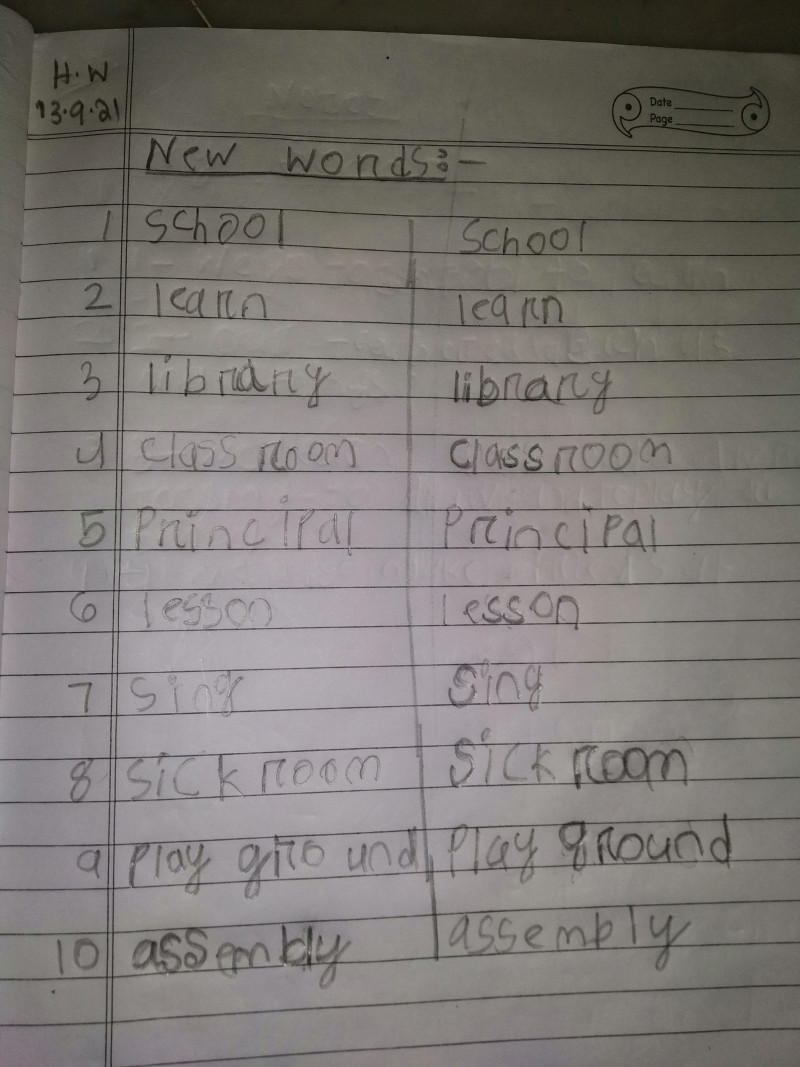 H.W
13.9.21
Date
Page
New words:-
1 school school
2 learn learn
3 library library
4 class room class room
5 Principal Principal
6 lesson lesson
7 sing sing
8 sick room sick room
9 Play gro und Play ground
10 assembly assembly